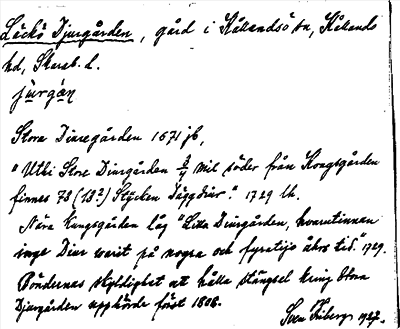 Läckö Djurgården, gård i Kållandsö sn, Kållands
hd, Skarab. l.
jürgán
Stora Diuregården 1671 jb,
"Uthi Store Diurgården 3/4 mil söder från Kongsgården
finnes 73 (13?) Stycken Däggdiur." 1729 lh.
Nära Kungsgården låg "Lilla Diurgården, hwarutinnan
inge Diur warit på nogra och fyratijo åhrs tid." 1729.
Böndernas skyldighet att hålla stängsel kring Stora
Djurgården upphörde först 1808.
Sven Friberg 1927.